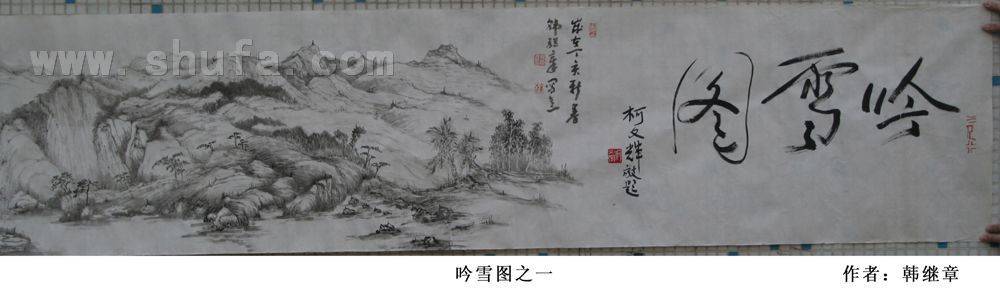 吟雪图
柯文辉敬题
岁在丁亥新春
韩继章写意
www.shufa.com
吟雪图之一
作者：韩继章